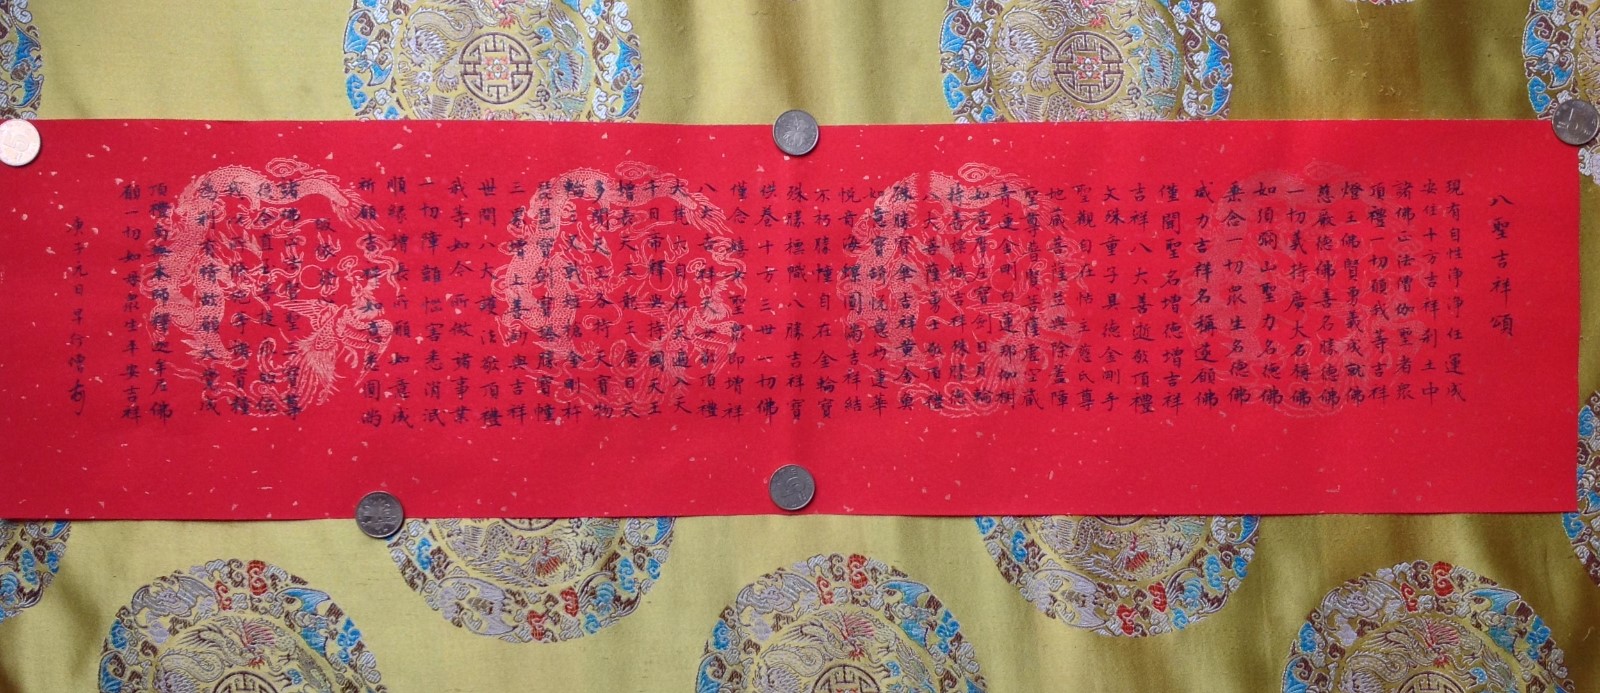 八聖吉祥頌
現有自性淨淨任運成
安住十方吉祥剎土中
諸佛正法僧伽聖者眾
頂禮一切願我等吉祥
燈王佛賢勇義成就佛
慈嚴德佛善名勝德佛
一切義持廣大名稱佛
如須彌山聖力名德佛
乘合一切眾生名德佛
威力吉祥名稱遂願佛
僅聞聖名增德增吉祥
吉祥八大善逝敬頂禮
文殊童子具德金剛手
聖觀自在怙主慈氏尊
地藏菩薩並與除蓋障
聖尊普賢菩薩虛空藏
青蓮金剛白蓮那伽樹
如意寶日月輪
持善標幟吉祥殊勝德
八大菩薩勇士敬頂禮
殊勝寶傘吉祥黃金魚
如意寶妙蓮華
悅音海螺圓滿吉祥結
不朽勝幢自在金輪寶
殊勝標幟八勝吉祥寶
供養十方三世一切佛
僅念嬉女聖眾即增祥
八大吉祥天女敬頂禮
大梵大自在天遍入天
千目帝釋與持國天王
增長天王龍王廣目天
多聞天王各持天寶物
輪三叉戟短槍金剛杵
琵琶寶劍寶塔勝寶幢
三界增上善妙與吉祥
世間八大護法敬頂禮
我等如今所做諸事業
一切障難惱害悉消泯
順緣增長所願如意成
祈願吉祥如意悉圓滿
諸佛正法賢聖三寶尊
從今直至菩提永皈依
我以所修施等諸資糧
為利有情故願大覺成
頂禮南無本師釋迦牟尼佛
願一切如母眾生平安吉祥